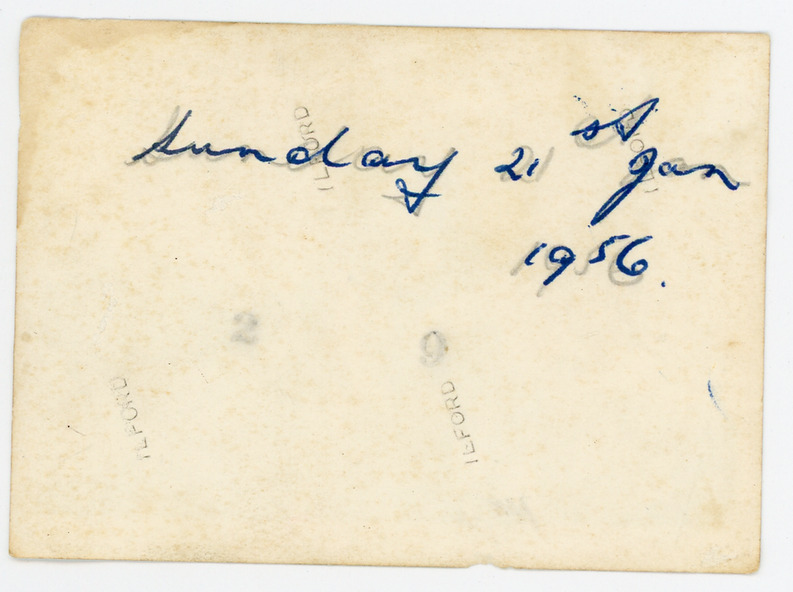 Sunday 21st Jan
1956.
ILFORD
ILFORD
2 9
ILFORD
ILFORD